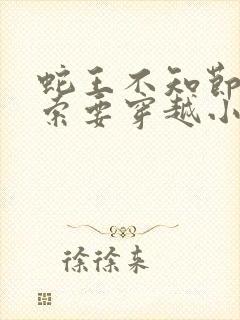 蛇王不知节
索要穿越小
徐徐来